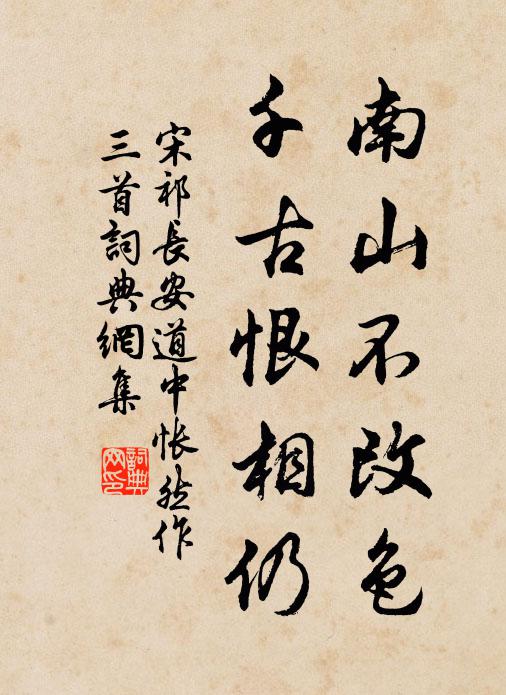 南山不改色
千古恨相仍
宋祁長安道中悵然作
三首詞典網集
詞典
网印